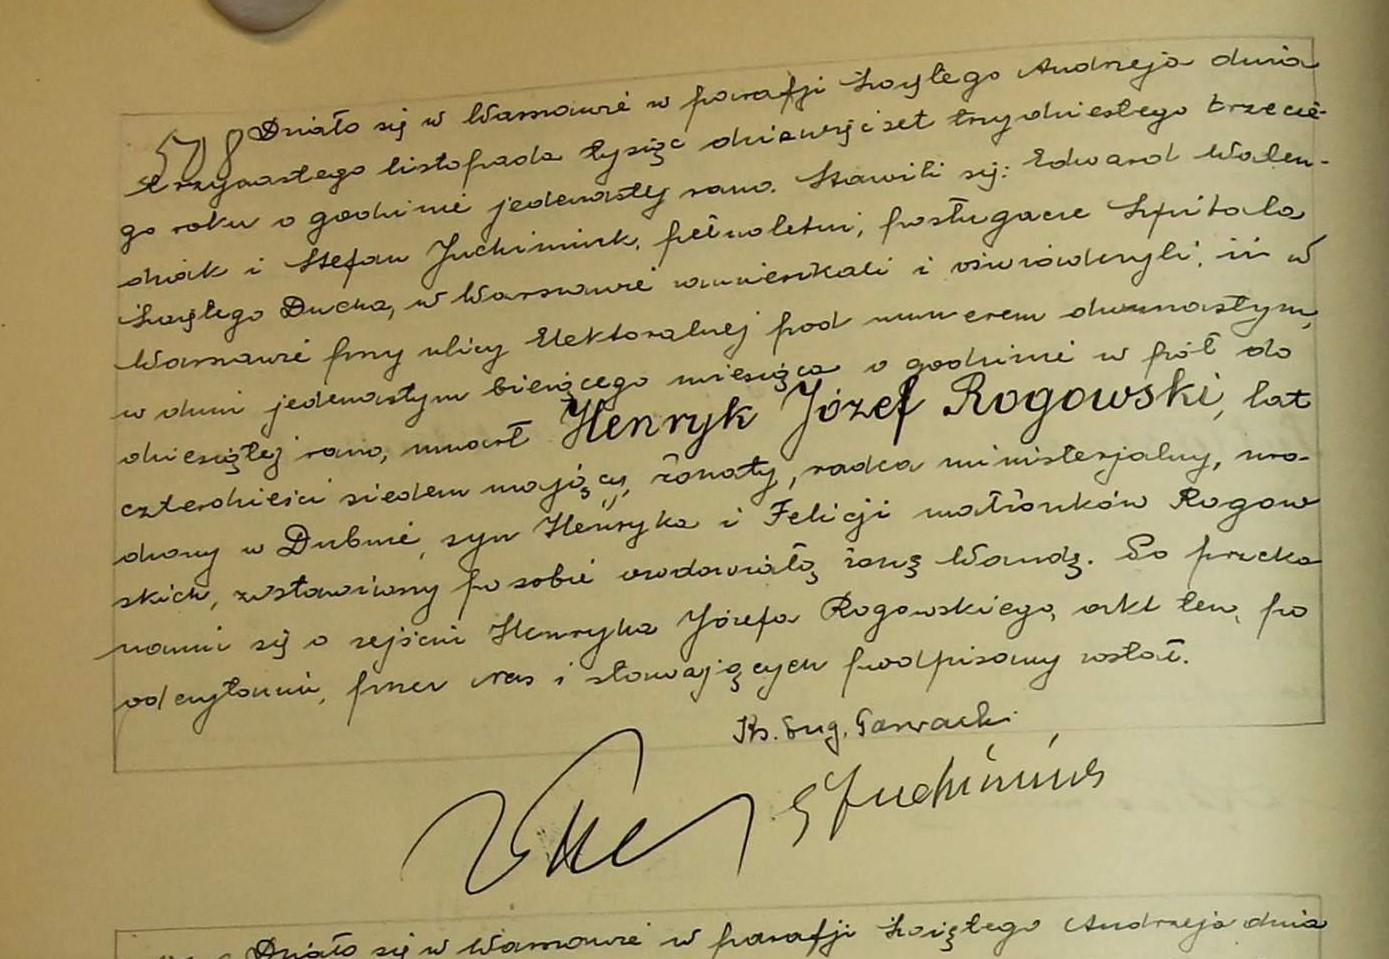 578 Działo się w Warszawie w parafji Świętego Andrzeja dnia
trzynastego listopada tysiąc dziewięćset trzydziestego trzecie-
go roku o godzinie jedenastej rano. Stawili się: Edward Walen-
dziak i Stefan Juchimiuk, pełnoletni, posługacze Szpitala
Świętego Ducha, w Warszawie zamieszkali i oświadczyli, iż w
Warszawie przy ulicy Elektoralnej pod numerem dwunastym,
w dniu jedenastym bieżącego miesiąca o godzinie w pół do
dziesiątej rano, umarł Henryk Józef Rogowski, lat
czterdzieści siedem mający, żonaty, radca ministerjalny, uro-
dzony w Dubnie, syn Henryka i Felicji małżonków Rogow
skich, zostawiwszy po sobie owdowiałą żonę Wandę. Po przeko
naniu się o zejściu Henryka Józefa Rogowskiego, akt ten, po
odczytaniu, przez nas i stawających podpisany został.
Ks. Eug.
S Juchimiuk
Działo się w Warszawie w parafji Świętego Andrzeja dnia